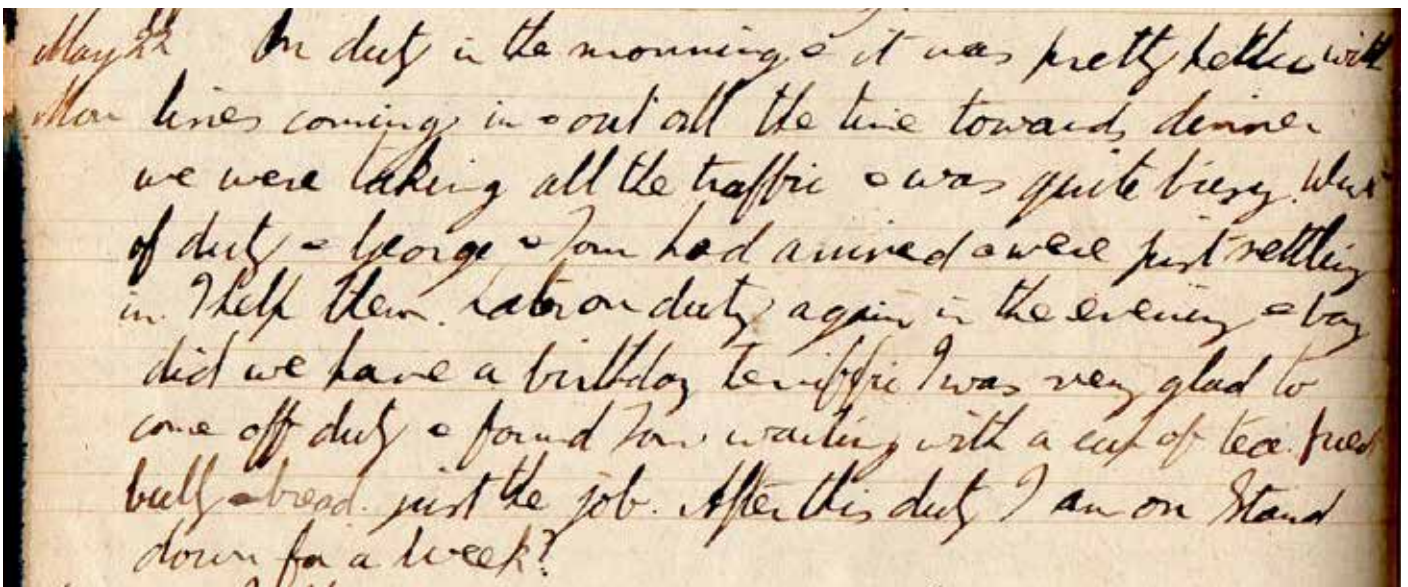 May 22 On duty in the morning & it was pretty hectic with
Mon lines coming in & out all the time towards dinner
we were taking all the traffic & was quite busy. Went
of duty & George & Tom had arrived & were just settling
in. I help them. Later on duty again in the evening & boy
did we have a birthday teriffic I was very glad to
come off duty & found Tom waiting with a cup of tea. fried
bully & bread. just the job. After this duty I am on Stand
down for a week?